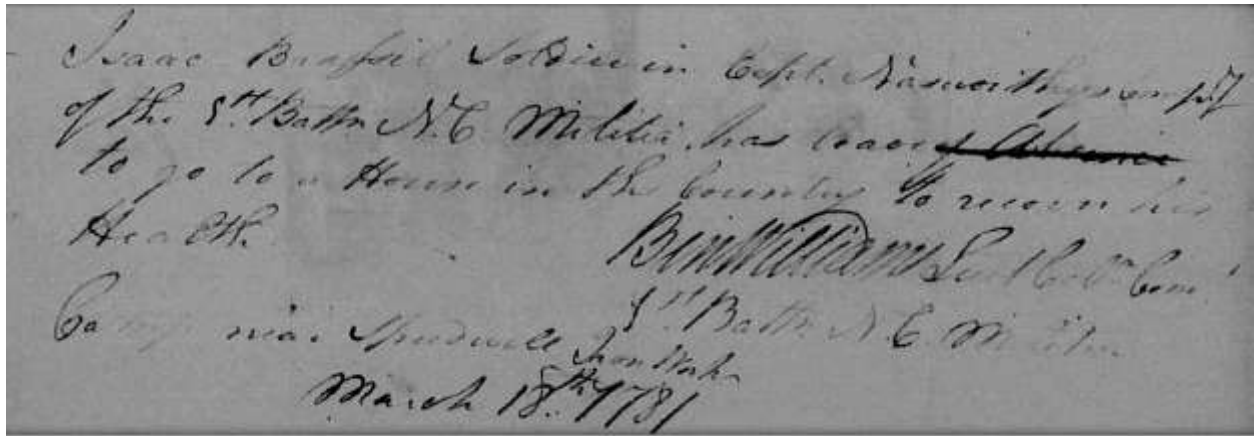 Isaac Brassil Soldier in Capt. Nasworthys Compy
of the 1st Battn N.C. Militia has leave of Absence
to go to a House in the Country to recover his
Health.
Ben Williams Lieut Colo Com
1st Battn N.C. Militia
Camp near Speedwell Iron Works
March 18th 1781